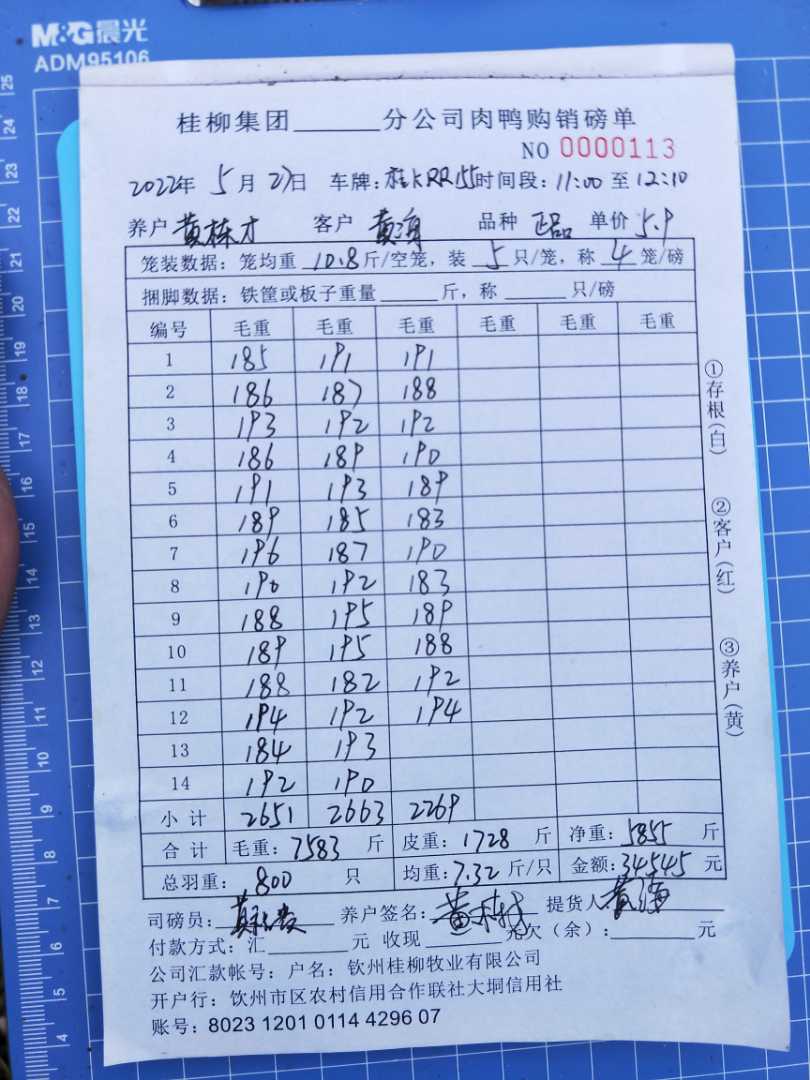 M&G晨光
ADM95106
桂柳集团______分公司肉鸭购销磅单
NO 0000113
2022年 5月27日 车牌:桂KRR155 时间段:11:00至12:10
养户 黄栋才 客户 黄海 品种 正品 单价 5.9
笼装数据:笼均重 10.8 斤/空笼,装 5 只/笼,称 4 笼/磅
捆脚数据:铁筐或板子重量______斤,称______只/磅
编号 毛重 毛重 毛重 毛重 毛重 毛重
1 185 191 191
2 186 187 188
3 193 192 192
4 186 189 190
5 191 193 189
6 189 185 183
7 196 187 190
8 190 192 183
9 188 195 189
10 189 195 188
11 188 182 192
12 194 192 194
13 184 193
14 192 190
小计 2651 2663 2269
合计 毛重:7583 斤 皮重:1728 斤 净重:5855 斤
总羽重:800 只 均重:7.32 斤/只 金额:34545 元
司磅员: 养户签名: 提货人 黄海
付款方式:汇______元 收现______元欠(余):______元
公司汇款帐号:户名:钦州桂柳牧业有限公司
开户行:钦州市区农村信用合作联社大垌信用社
账号:8023 1201 0114 4296 07
①存根(白)
②客户(红)
③养户(黄)
25
24
23
22
21
20
19
18
17
16
15
14
13
12
11
10
9
8
7
6
5
4